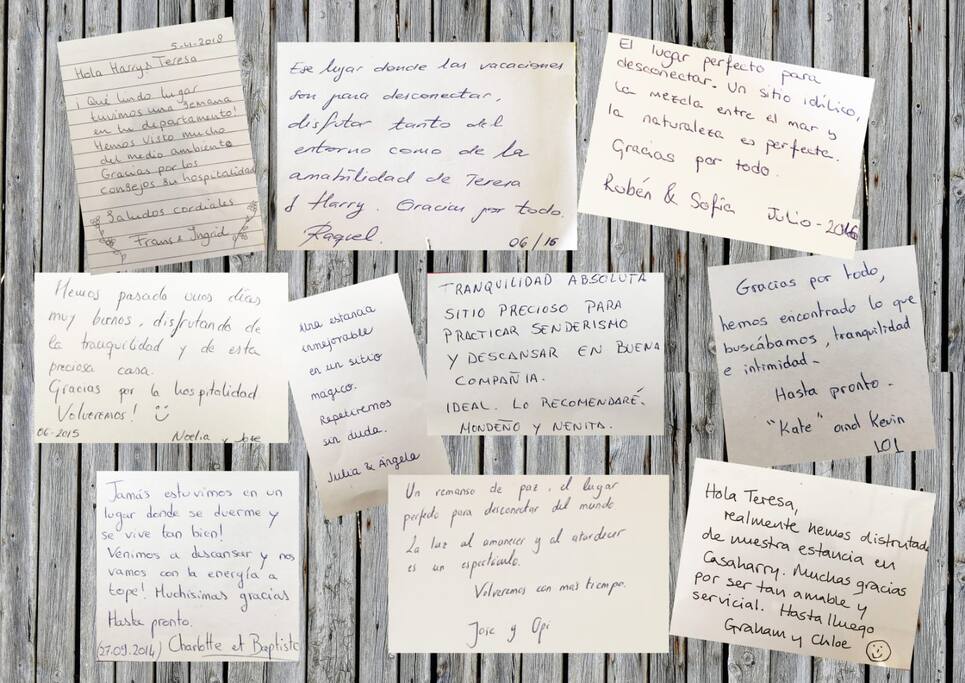 5.11.2018
Hola Harry & Teresa
¡Qué lindo lugar
tuvimos una semana
en tu departamento!
Hemos visto mucho
del medio ambiente
Gracias por los
consejos su hospitalidad
Saludos cordiales
Frans & Ingrid
Ese lugar donde las vacaciones
son para desconectar,
disfrutar tanto del
entorno como de la
amabilidad de Teresa
y Harry. Gracias por todo.
Raquel.
06/16
El lugar perfecto para
desconectar. Un sitio idílico,
la mezcla entre el mar y
la naturaleza es perfecta.
Gracias por todo.
Rubén & Sofía Julio-2016
Hemos pasado unos días
muy buenos, disfrutando de
la tranquilidad y de esta
preciosa casa.
Gracias por la hospitalidad
Volveremos!
06-2015
Noelia y Jose
Una estancia
inmejorable
en un sitio
magico.
Repetiremos
sin duda.
Julia & Ángela
TRANQUILIDAD ABSOLUTA
SITIO PRECIOSO PARA
PRACTICAR SENDERISMO
Y DESCANSAR EN BUENA
COMPAÑIA.
IDEAL. LO RECOMENDARÉ.
MONDEÑO Y NENITA.
Gracias por todo,
hemos encontrado lo que
buscábamos, tranquilidad
e intimidad.
Hasta pronto.
"Kate" and Kevin
Jamás estuvimos en un
lugar donde se duerme y
se vive tan bien!
Venimos a descansar y nos
vamos con la energía a
tope! Muchísimas gracias
Hasta pronto.
(27.09.2014) Charlotte et Baptiste
Un remanso de paz, el lugar
perfecto para desconectar del mundo
La luz al amanecer y al atardecer
es un espectáculo.
Volveremos con mas tiempo.
Jose y Opi
Hola Teresa,
realmente hemos disfrutado
de nuestra estancia en
Casaharry. Muchas gracias
por ser tan amable y
servicial. Hasta lluego
Graham y Chloe